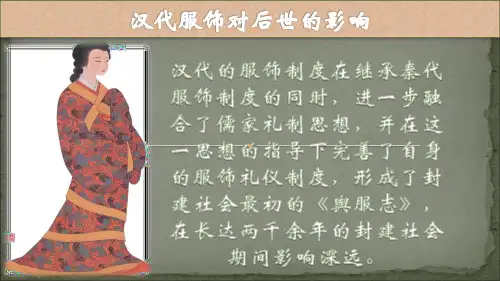 汉代服饰对后世的影响
汉代的服饰制度在继承秦代
服饰制度的同时，进一步融
合了儒家礼制思想，并在这
一思想的指导下完善了自身
的服饰礼仪制度，形成了封
建社会最初的《舆服志》，
在长达两千余年的封建社会
期间影响深远。